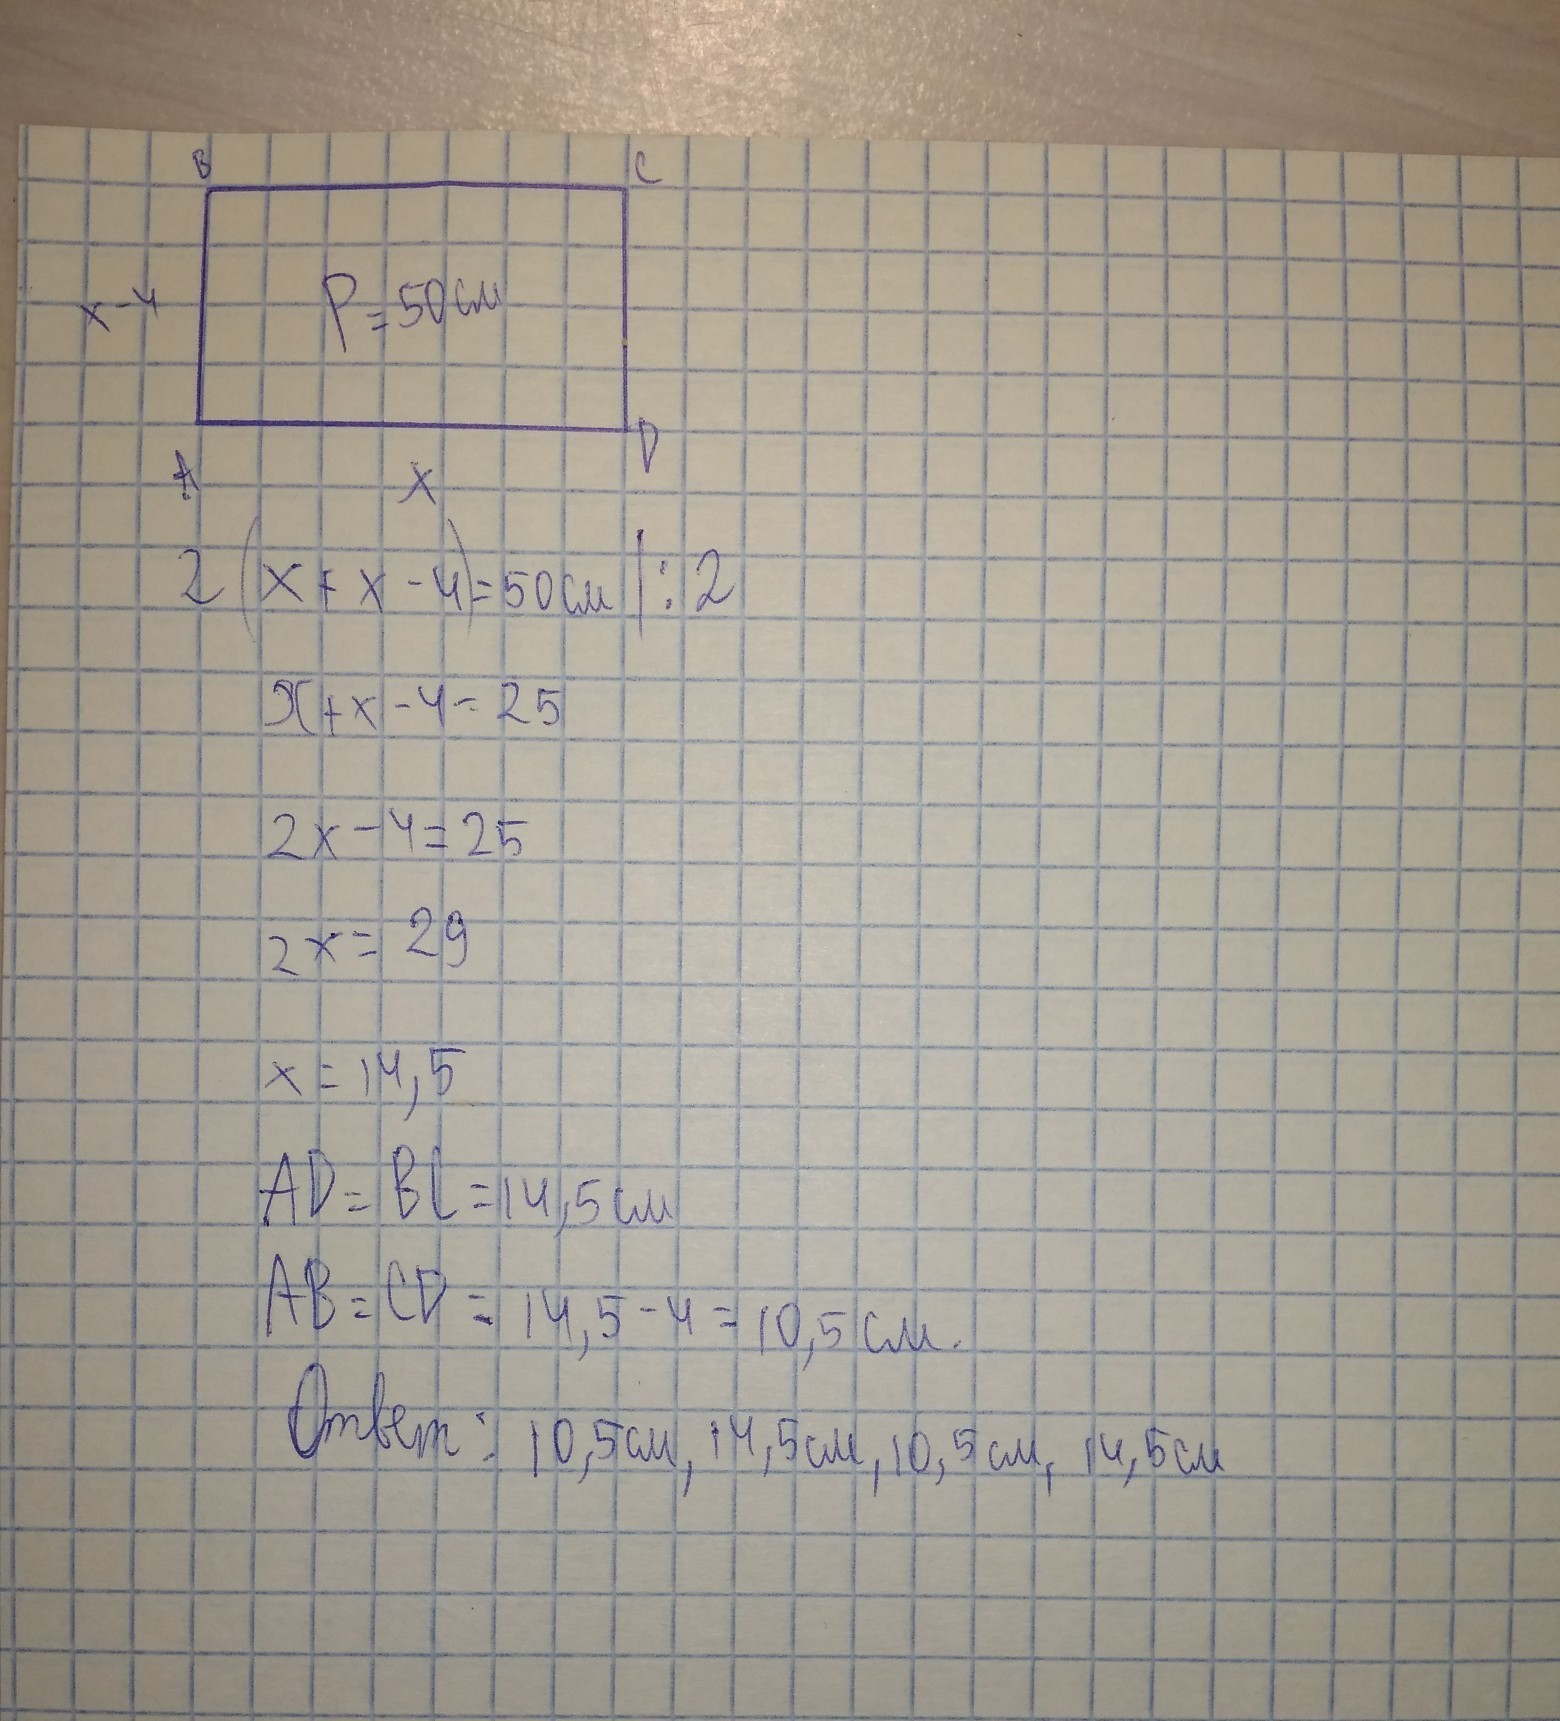 B C
x-4
P=50см
A D
x
2(x+x-4)=50см |:2
x+x-4=25
2x-4=25
2x=29
x=14,5
AD=BC=14,5см
AB=CD=14,5-4=10,5см.
Ответ: 10,5см, 14,5см, 10,5см, 14,5см